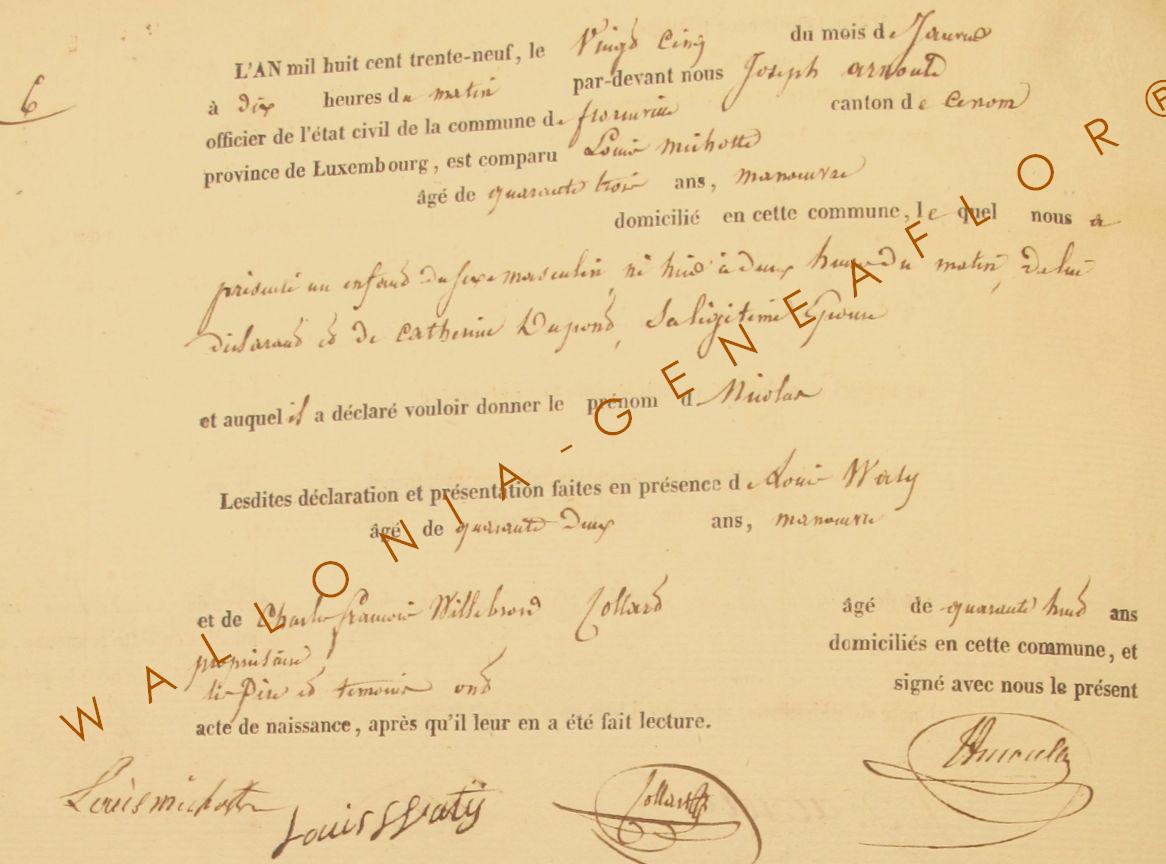 6
L'AN mil huit cent trente-neuf, le Vingt Cinq du mois de Janvier
à dix heures du matin par-devant nous Joseph arnould
officier de l'état civil de la commune de florenville canton de
province de Luxembourg, est comparu Louis michotte
âgé de quarante trois ans, manoeuvre
domicilié en cette commune, lequel nous a
présenté un enfant du sexe masculin, né hier à deux heures du matin, de lui
déclarant et de Catherine Dupond, sa légitime Epouse
et auquel il a déclaré vouloir donner le prénom de Nicolas
Lesdites déclaration et présentation faites en présence de Louis Waty
âgé de quarante deux ans, manoeuvre
et de Charles françois Willebrord Collard âgé de quarante huit ans
propriétaire domiciliés en cette commune, et
le Père et temoins ont signé avec nous le présent
acte de naissance, après qu'il leur en a été fait lecture.
Louis michotte Louis Waty Collard
WALLONIA-GENEAFLOR®